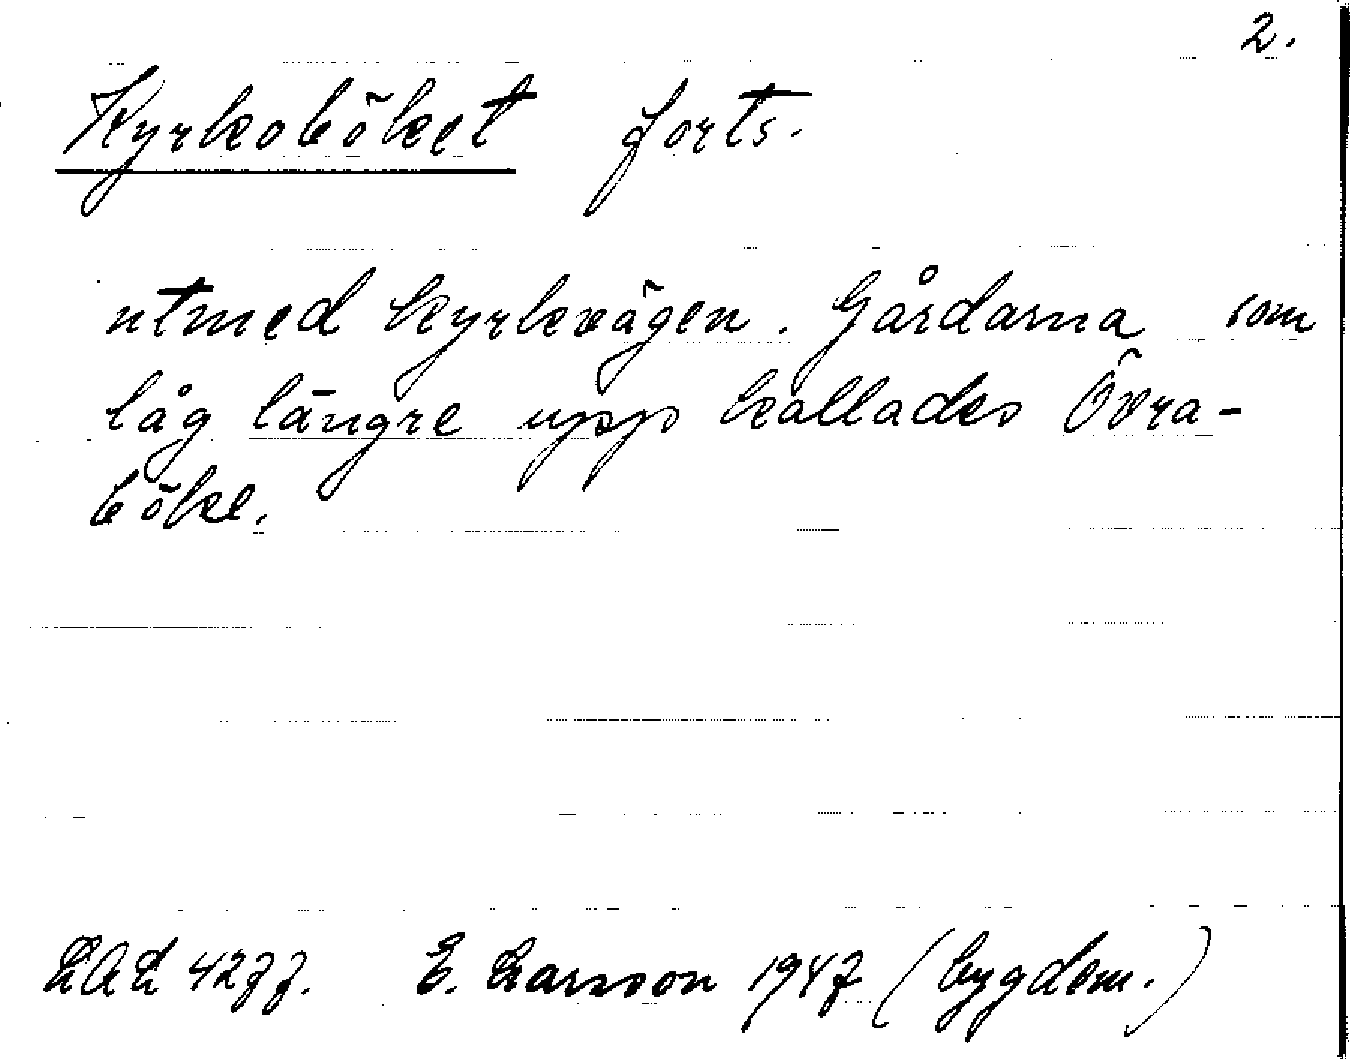 2.
Kyrkoböket forts.
utmed kyrkvägen. Gårdarna som
låg längre upp kallades Övra-
böke.
LAL 4277. E. Larsson 1947 (bygdem.)